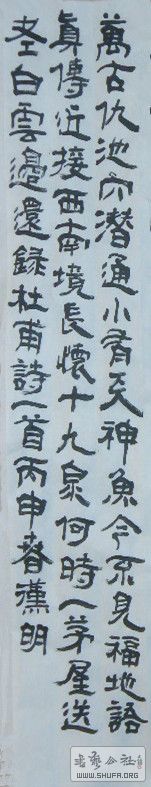 萬古仇池穴潛通小有天神魚今不見福地語
眞傳近接西南境長懷十九泉何時一茅屋送
老白雲邊還錄杜甫詩一首丙申春漢明
書藝公社
WWW.SHUFA.ORG